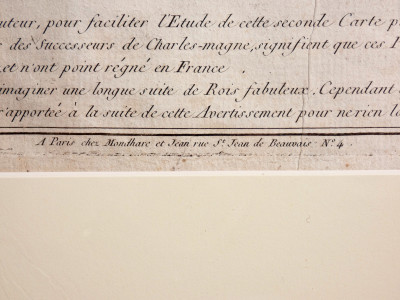 uteur, pour faciliter l'Etude de cette seconde Carte p
des Successeurs de Charles-magne, signifient que ces
et n'ont point régné en France.
imaginer une longue suite de Rois fabuleux. Cependant
rapportée à la suite de cette Avertissement pour ne rien
A Paris chez Mondhare et Jean rue St. Jean de Beauvais No. 4.